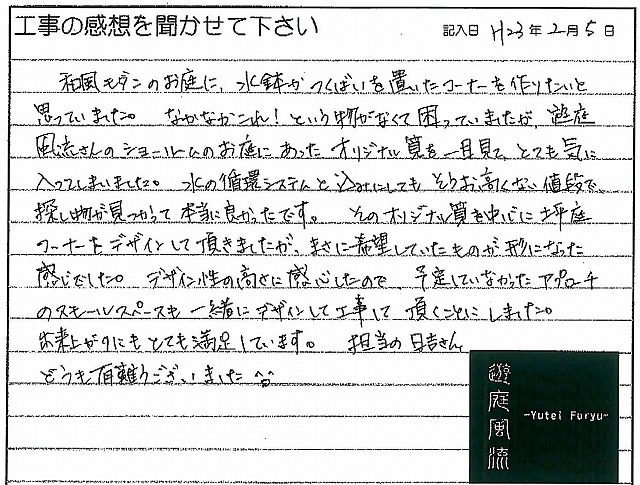 工事の感想を聞かせて下さい
記入日 H23年2月5日
和風モダンのお庭に、水鉢かつくばいを置いたコーナーを作りたいと
思っていました。 なかなかこれ!という物がなくて困っていましたが、遊庭
風流さんのショールームのお庭にあったオリジナル筧を一目見て、とても気に
入ってしまいました。 水の循環システムと込みにしても そうお高くない値段で、
探し物が見つかって本当に良かったです。 そのオリジナル筧を中心に坪庭
コーナーをデザインして頂きましたが、まさに希望していたものが形になった
感じでした。 デザイン性の高さに感心したので、予定していなかったアプローチ
のスモールスペースも一緒にデザインして工事して頂くことにしました。
出来上がりにもとても満足しています。 担当の日吉さん、
どうも有難うございました^^
遊庭風流
~Yutei Furyu~